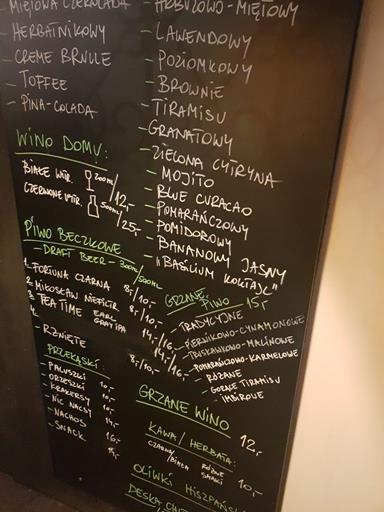 MIĘTOWA CZEKOLADA
- HERBATNIKOWY
- CREME BRULE
- TOFFEE
- PINA-COLADA
- ARBUZOWO-MIĘTOWY
- LAWENDOWY
- POZIOMKOWY
- BROWNIE
- TIRAMISU
- GRANATOWY
- ZIELONA CYTRYNA
- MOJITO
- BLUE CURACAO
- POMARAŃCZOWY
- POMIDOROWY
- BANANOWY JASNY
- "BASILIUM KOKTAJL"
WINO DOMU:
BIAŁE WYTR. 200ml/12,-
CZERWONE WYTR. 500ml/25,-
PIWO BECZKOWE
- DRAFT BEER - 300ml/500ml
1. FORTUNA CZARNA 8,-/10,-
2. MIŁOSŁAW NIEFILTR 8,-/10,-
3. TEA TIME EARL GREY IPA 14,-/16,-
4. 14,-/16,-
- RŻNIĘTE 8,-/10,-
PRZEKĄSKI:
- PALUSZKI 10,-
- ORZESZKI 10,-
- KRAKERSY 10,-
- NIC NACSY 14,-
- NACHOS 16,-
- SNACK
GRZANE PIWO - 15,-
- TRADYCYJNE
- PIERNIKOWO-CYNAMONOWE
- TRUSKAWKOWO-MALINOWE
- POMARAŃCZOWO-KARMELOWE
- RÓŻANE
- GORĄCE TIRAMISU
- IMBIROWE
GRZANE WINO 12,-
KAWA / HERBATA:
CZARNA/BIAŁA RÓŻNE SMAKI 10,-
OLIWKI HISZPAŃSKIE
DESKA